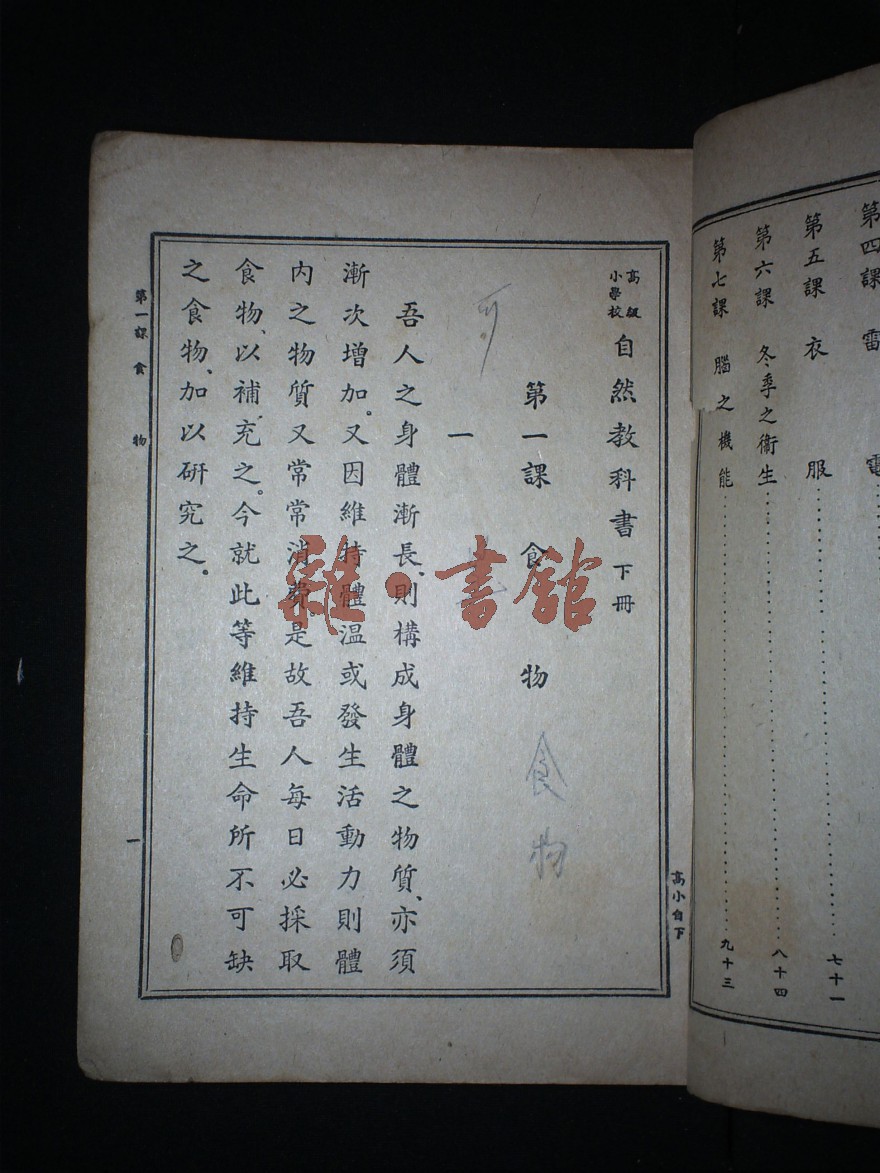 第四課 雷 電
第五課 衣 服 七十一
第六課 冬季之衞生 八十四
第七課 腦之機能 九十三
高小自下
高級小學校 自然教科書 下冊
第一課 食物
食物
一
吾人之身體漸長、則構成身體之物質、亦須
漸次增加。又因維持體溫或發生活動力則體
內之物質又常常消費。是故吾人每日必採取
食物、以補充之。今就此等維持生命所不可缺
之食物、加以研究之。
第一課 食物
一
雜·書館